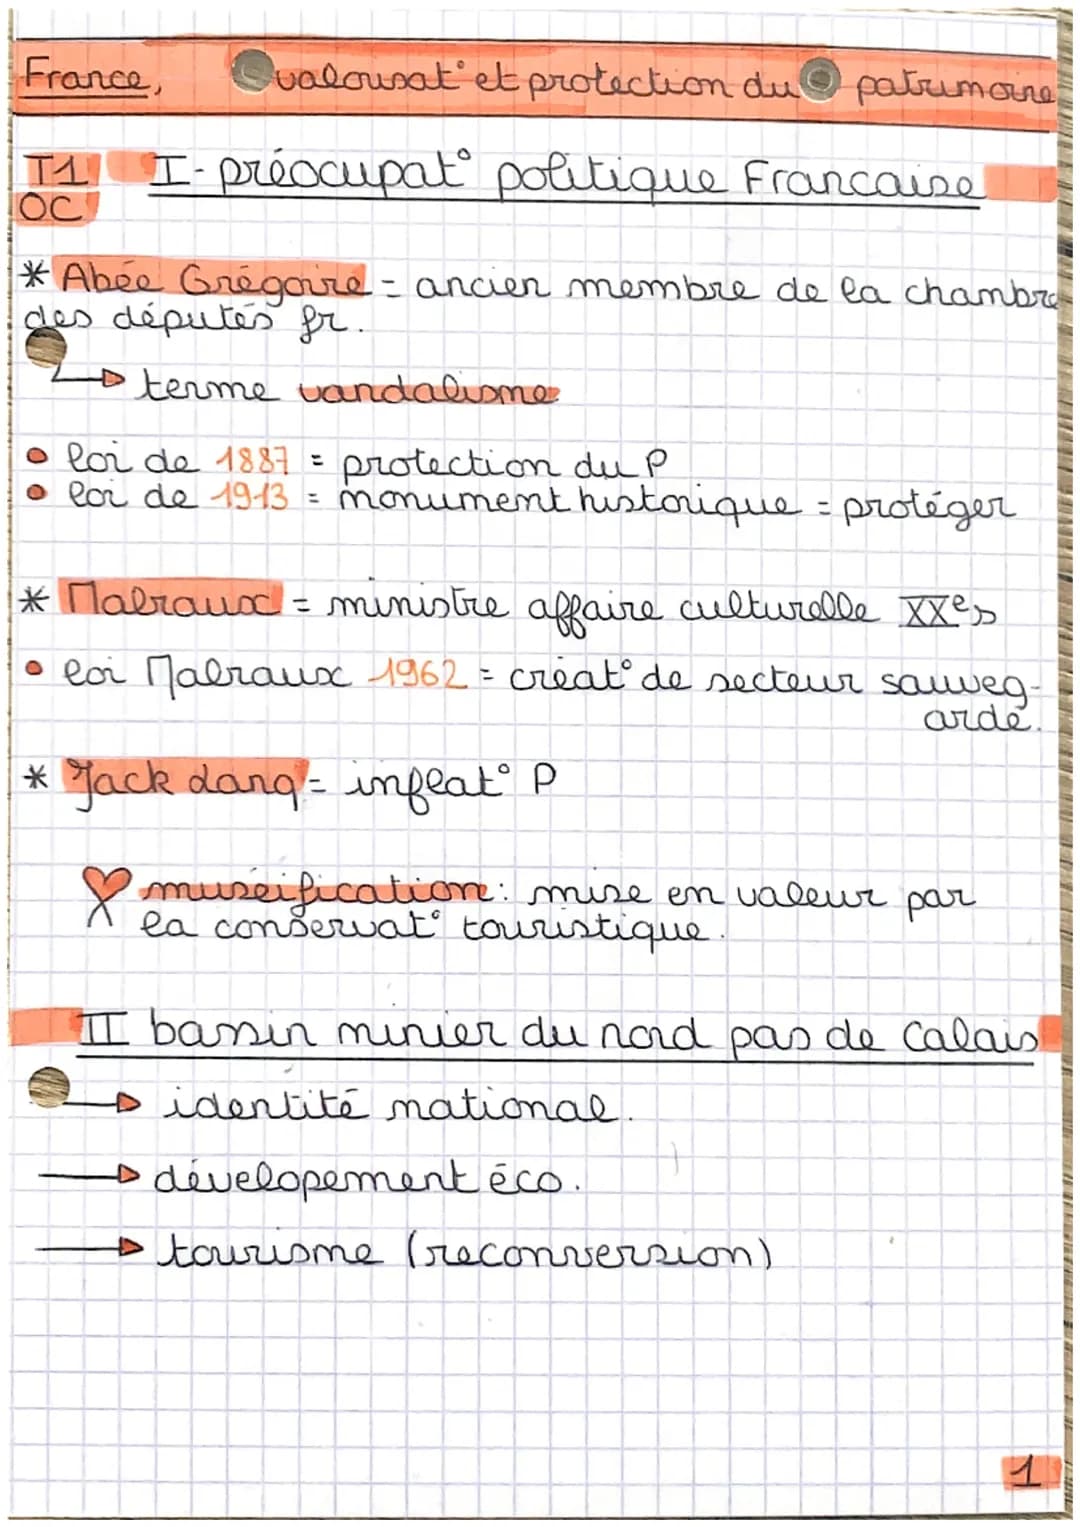 France, valorisat° et protection du patrimoine
T1 I- préocupat° politique Francaise
OC
* Abée Grégoire = ancien membre de la chambre
des députés fr.
terme vandalisme
loi de 1887 = protection du P
loi de 1913 = monument historique = protéger
* Malraux = ministre affaire culturelle XXe s
loi Malraux 1962 = créat° de secteur sauveg-
arde.
* Jack lang = inflat° P
muséification : mise en valeur par
la conservat° touristique.
II bassin minier du nord pas de Calais
identité national.
dévelopement éco.
tourisme (reconversion)
1